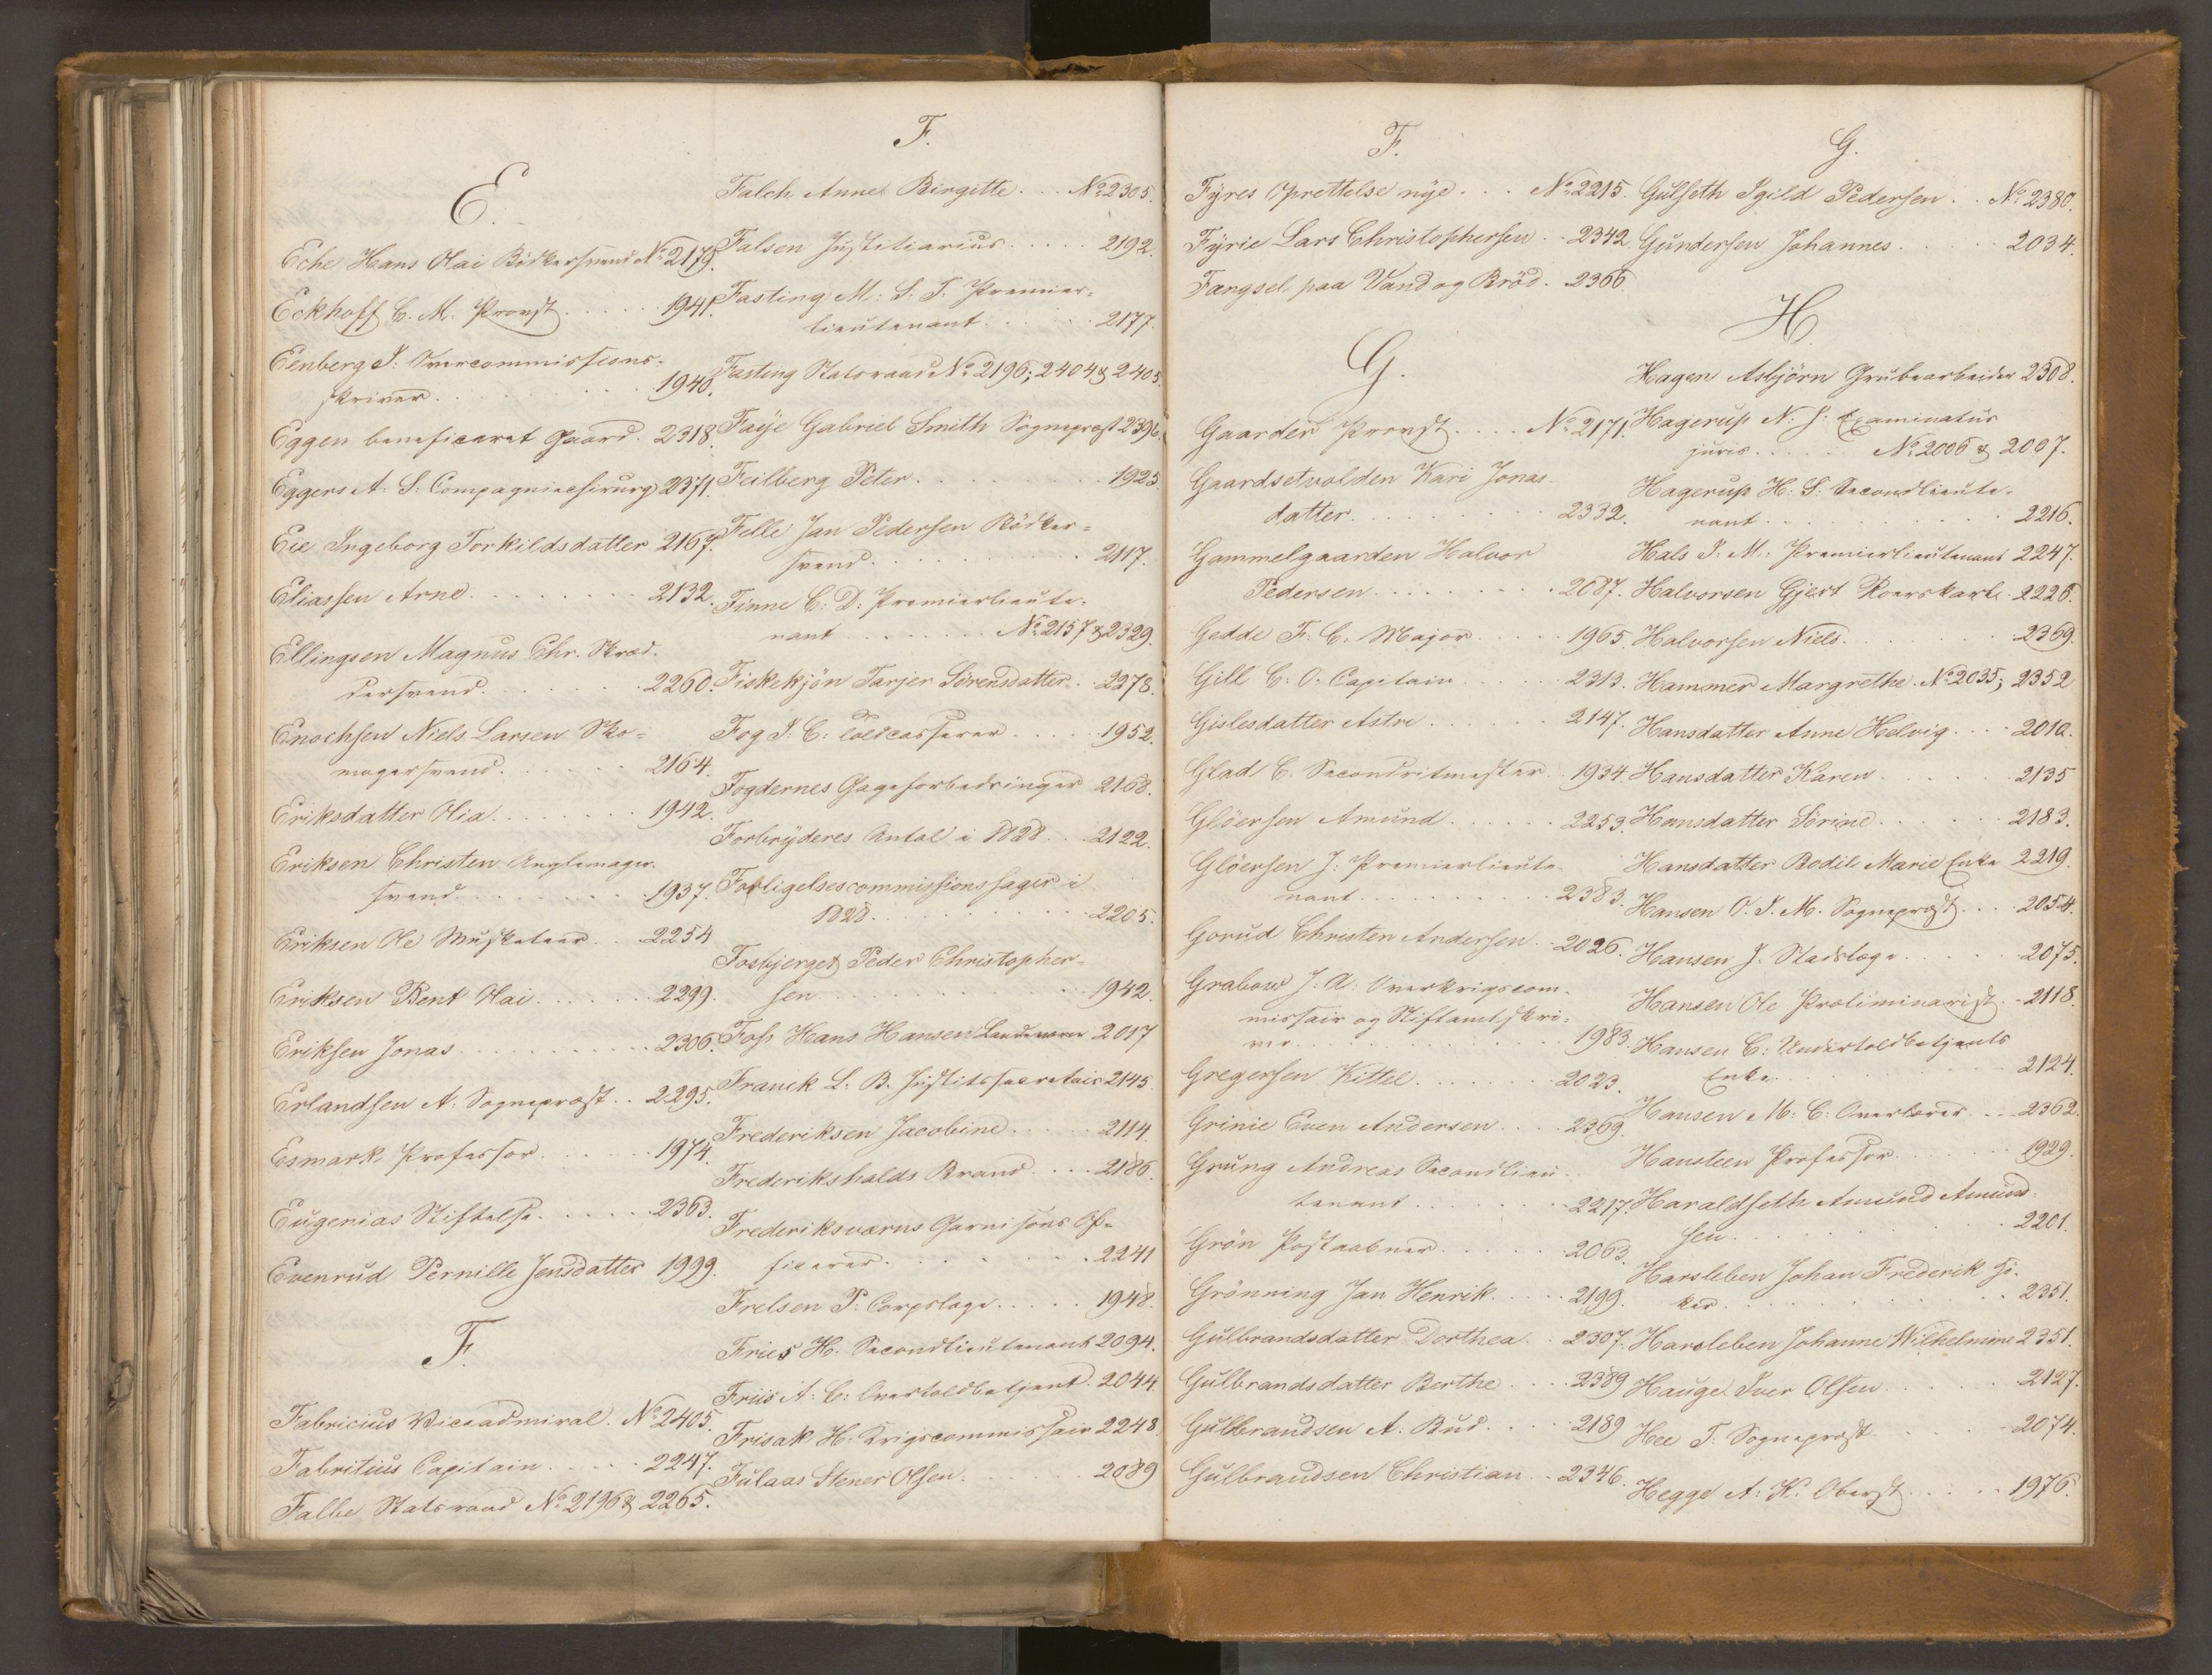 E.
Eche Hans Olai Bødkersvend No 2179.
Eckhoff C. M. Provst 1941.
Eenberg J: Overcommissions-
skriver 1940.
Eggen beneficeret Gaard. 2318.
Eggers A. S: Compagniechirurg 2371.
Eie Ingeborg Torkildsdatter 2167.
Eliassen Arne 2132.
Ellingsen Magnus Chr. Skræd-
dersvend 2260.
Enochsen Niels Larsen Sko-
magersvend 2164.
Eriksdatter Olia 1942.
Eriksen Christen
svend 1937.
Eriksen Ole Musketeer 2254
Eriksen Bent Olai 2299.
Eriksen Jonas 2306.
Erlandsen A. Sognepræst 2295.
Esmark Professor 1974.
Eugenias Stiftelse 2363.
Evenrud Pernille Jensdatter 1999.
F.
Fabricius Viceadmiral. No 2405.
Fabritius Capitain 2247.
Falbe Statsraad No 2196 & 2265.
F.
Falch Anne Birgitte No 2305.
Falsen Justitiarius 2192.
Fasting M: S. T. Premier-
lieutenant 2177.
Fasting Statsraad No 2196; 2404 & 2405.
Faye Gabriel Smith Sognepræst 2396.
Feilberg Peter 1925.
Felle Jan Pedersen Bødker-
svend 2117.
Finne C: D: Premierlieute-
nant No 2157 & 2329.
Fiskekjøn Tarjer Sørensdatter 2378.
Fog J. C: Toldcasserer 1952.
Fogdernes Gageforbedringer 2168.
Forbryderes Antal i 1828 2122.
Forligelsescommissionssager i
1828 2205.
Fosbjerget Peder Christopher-
sen 1942.
Foss Hans Hansen Landeværn 2017
Franck L. B. Justitssecretair 2145.
Frederiksen Jacobine 2114.
Frederikshalds Brand 2186.
Frederiksværns Garnisons Of-
ficerer 2241
Frelsen P. Corpslæge 1948.
Fries H. Secondlieutenant 2094.
Friis A: C: Overtoldbetjent. 2044.
Frisak H. Krigscommissair 2248.
Fulaas Stener Olsen 2089
F.
Fyres Oprettelse nye No 2215.
Fyrie Lars Christophersen 2342.
Fængsel paa Vand og Brød. 2366.
G.
Gaarder Provst No 2171.
Gaardsetvolden Kari Jonas-
datter 2332.
Gammelgaarden Halvor
Pedersen 2087.
Gedde F. C. Major 1965.
Gill C. O. Capitain 2313.
Gislesdatter Astri 2147.
Glad C. Secondritmester 1934.
Gløersen Amund 2253.
Gløersen J: Premierlieute-
nant 2383.
Gorud Christen Andersen 2026.
Grabow J. A. Overkrigscom-
missair og Stiftamtskri-
ver 1983.
Gregersen Kittel 2023.
Grinie Even Andersen 2369.
Grung Andreas Secondlieu-
tenant 2217.
Grøn Postaabner 2063.
Grønning Jan Henrik 2199.
Gulbrandsdatter Dorthea 2307.
Gulbrandsdatter Berthe 2389
Gulbrandsen A. Bud 2189
Gulbrandsen Christian 2346.
G.
Gulseth Igild Pedersen No 2380.
Gundersen Johannes 2034.
H.
Hagen Asbjørn Grubearbeider 2308.
Hagerup N. J: Examinatus
juris No 2006 & 2007.
Hagerup H. S: Secondlieute-
nant 2216.
Hals J. M: Premierlieutenant 2247.
Halvorsen Gjert Roerskarl 2226.
Halvorsen Niels 2369.
Hammer Margrethe No 2035; 2352
Hansdatter Anne Helvig 2010.
Hansdatter Karen 2135
Hansdatter Sørine 2183.
Hansdatter Bodil Marie Enke 2219.
Hansen O. J. M. Sognepræst 2054.
Hansen J. Stadslæge 2075.
Hansen Ole Præliminarist 2118.
Hansen C: Undertoldbetjents
Enke 2124.
Hansen M: C: Overlærer 2362.
Hansteen Professor 1929.
Haraldseth Amund Amund-
sen 2201.
Harsleben Johan Frederik Hö-
ker 2351.
Harsleben Johanne Wilhelmine 2351.
Hauge Iver Olsen 2127.
Hee T. Sognepræst 2074.
Hegge A: K. Oberst 1976.